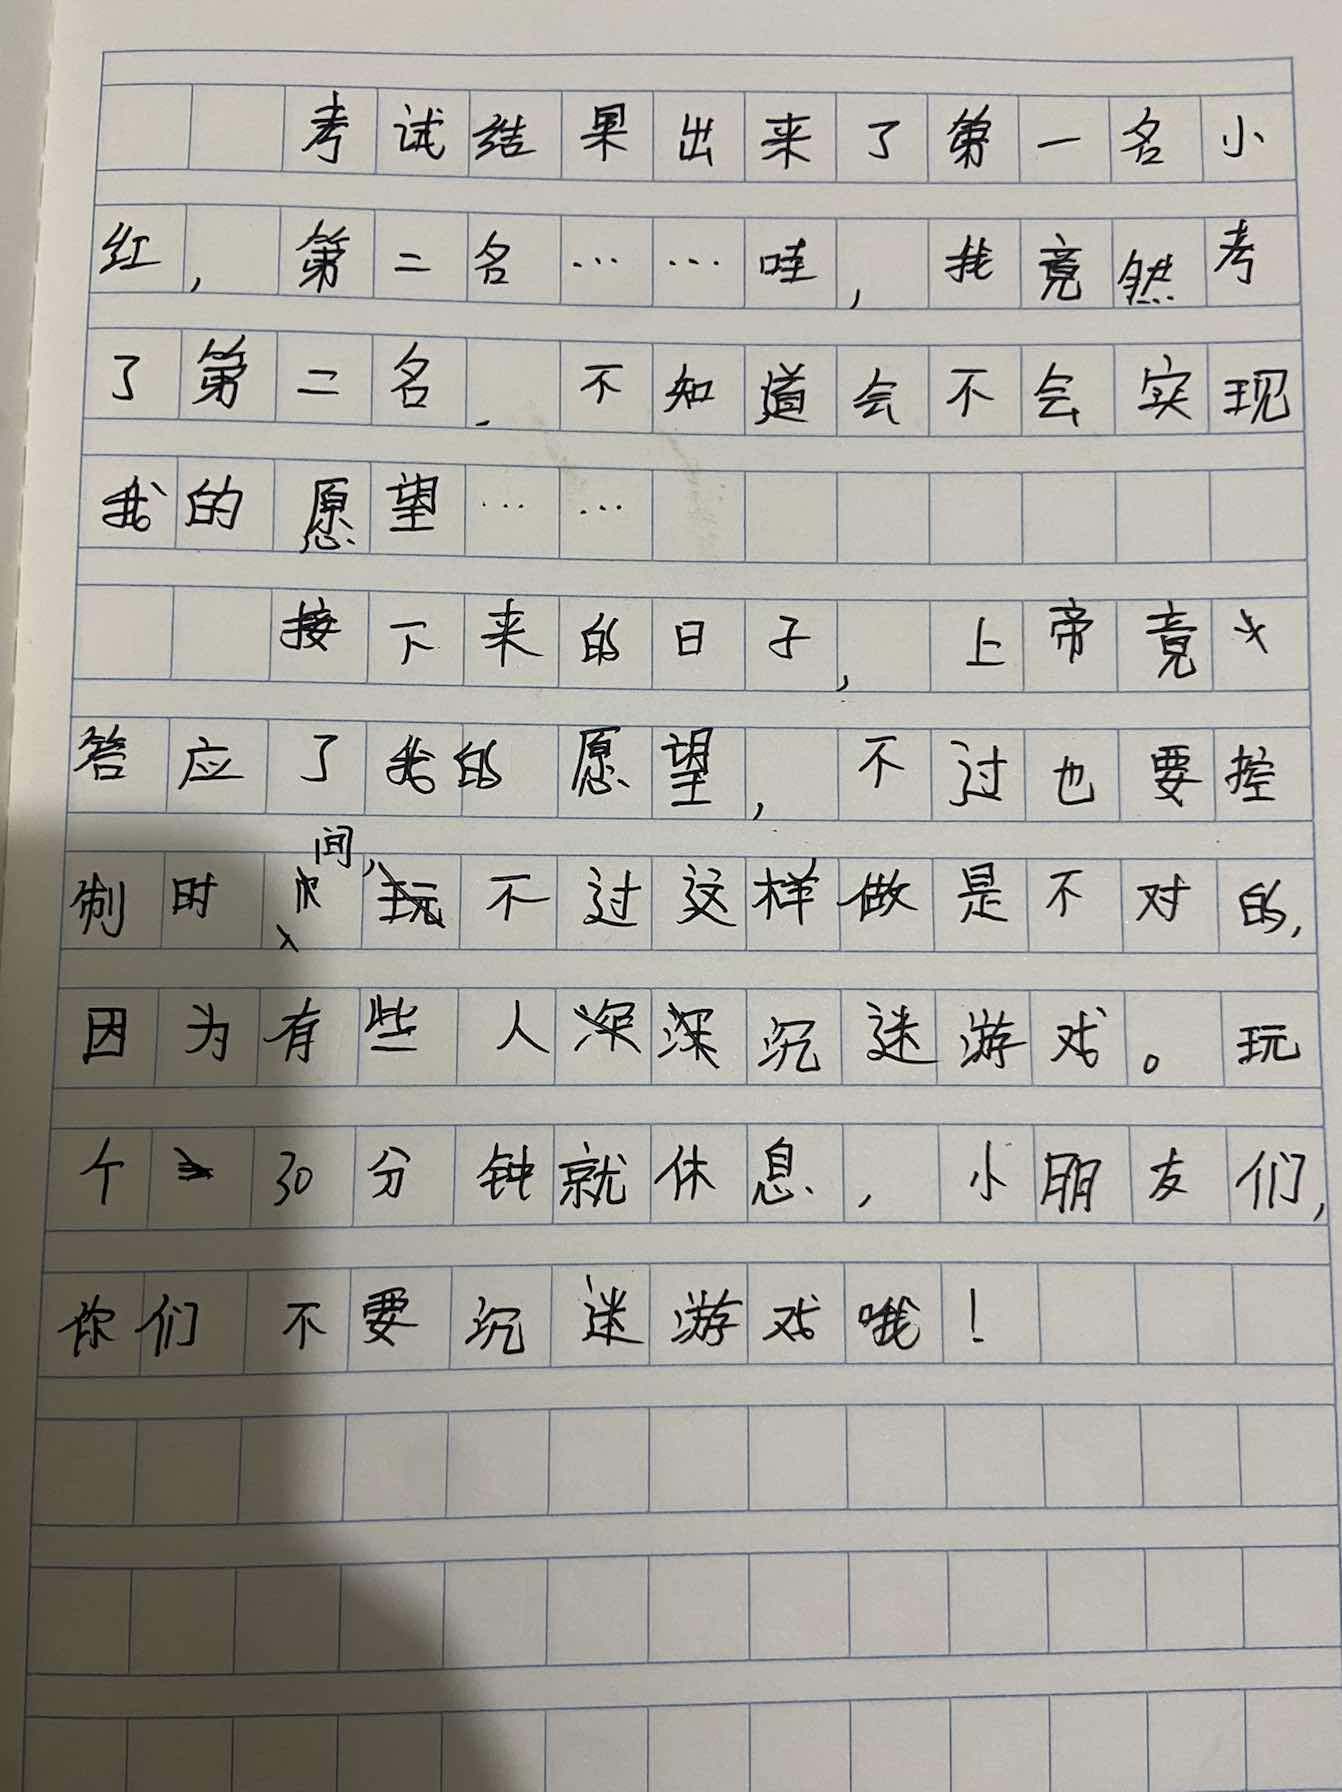 考试结果出来了第一名小
红，第二名……哇，我竟然考
了第二名．不知道会不会实现
我的愿望……
接下来的日子，上帝竟
答应了我的愿望，不过也要控
制时间，不过这样做是不对的，
因为有些人沉迷游戏。玩
个30分钟就休息，小朋友们，
你们不要沉迷游戏哦！